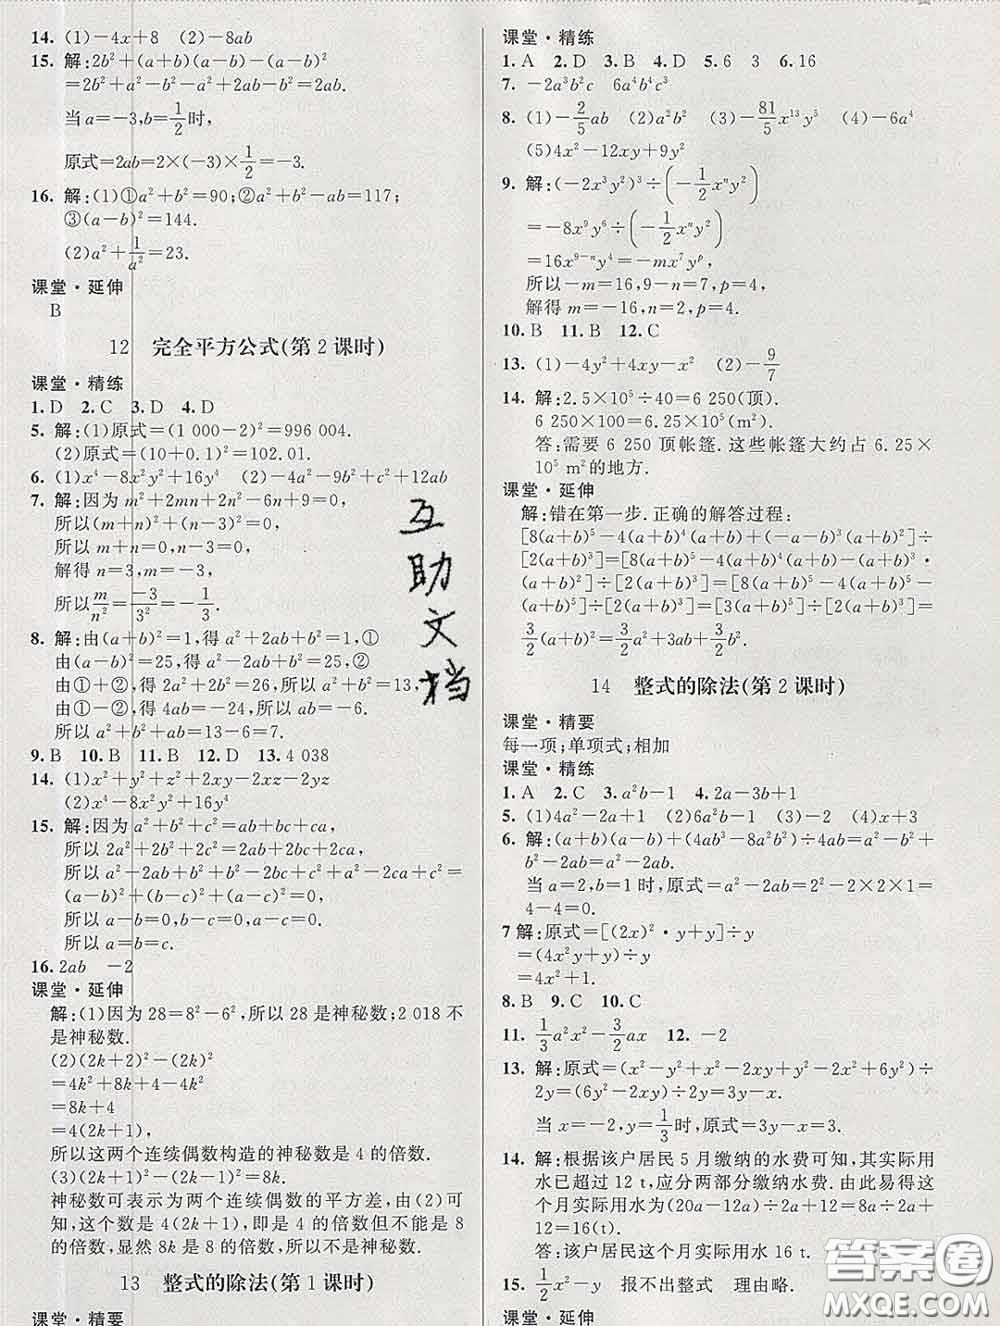 14. (1)-4x+8 (2)-8ab
15. 解:2b²+(a+b)(a-b)-(a-b)²
=2b²+a²-b²-a²+2ab-b²=2ab.
当 a=-3,b=1/2时,
原式=2ab=2×(-3)×1/2=-3.
16. 解:(1)①a²+b²=90;②a²-ab+b²=117;
③(a-b)²=144.
(2)a²+1/a²=23.
课堂·延伸
B
12 完全平方公式(第 2 课时)
课堂·精练
1. D 2. C 3. D 4. D
5. 解:(1)原式=(1 000-2)²=996 004.
(2)原式=(10+0.1)²=102.01.
6. (1)x⁴-8x²y²+16y⁴ (2)-4a²-9b²+c²+12ab
7. 解:因为 m²+2mn+2n²-6n+9=0,
所以(m+n)²+(n-3)²=0,
所以 m+n=0,n-3=0.
解得 n=3,m=-3,
所以m/n²=-3/3²=-1/3.
8. 解:由(a+b)²=1,得 a²+2ab+b²=1,①
由(a-b)²=25,得 a²-2ab+b²=25,②
由①+②,得 2a²+2b²=26,所以 a²+b²=13,
由①-②,得 4ab=-24,所以 ab=-6.
所以 a²+b²+ab=13-6=7.
9. B 10. B 11. B 12. D 13. 4 038
14. (1)x²+y²+z²+2xy-2xz-2yz
(2)x⁴-8x²y²+16y⁴
15. 解:因为 a²+b²+c²=ab+bc+ca,
所以 2a²+2b²+2c²=2ab+2bc+2ca,
所以 a²-2ab+b²+b²-2bc+c²+a²-2ca+c²=
(a-b)²+(b-c)²+(a-c)²=0.
所以 a-b=0,b-c=0,a-c=0.
所以 a=b=c.
16. 2ab -2
课堂·延伸
解:(1)因为 28=8²-6²,所以 28 是神秘数;2 018 不
是神秘数.
(2)(2k+2)²-(2k)²
=4k²+8k+4-4k²
=8k+4
=4(2k+1),
所以这两个连续偶数构造的神秘数是 4 的倍数.
(3)(2k+1)²-(2k-1)²=8k.
神秘数可表示为两个连续偶数的平方差,由(2)可
知,这个数是 4(2k+1),即是 4 的倍数但不能是 8
的倍数,显然 8k 是 8 的倍数,所以不是神秘数.
13 整式的除法(第 1 课时)
课堂·精要
课堂·精练
1. A 2. D 3. B 4. D 5. 6 3 6. 16
7. -2a³b²c 6a⁴b⁴c³
8. (1)-2/5ab (2)a²b² (3)-81/5x¹³y⁵ (4)-6a⁴
(5)4x²-12xy+9y²
9. 解:(-2x³y²)³÷(-1/2xⁿy²)
=-8x⁹y⁶÷(-1/2xⁿy²)
=16x⁹⁻ⁿy⁴=-mx⁷yᵖ,
所以-m=16,9-n=7,p=4,
解得 m=-16,n=2,p=4.
10. B 11. B 12. C
13. (1)-4y²+4xy-x² (2)-9/7
14. 解:2.5×10⁵÷40=6 250(顶).
6 250×100=6.25×10⁵(m²)
答:需要 6 250 顶帐篷. 这些帐篷大约占 6.25×
10⁵ m²的地方.
课堂·延伸
解:错在第一步. 正确的解答过程:
[8(a+b)⁵-4(a+b)⁴(a+b)+(-a-b)³(a+b)²]÷
[2(a+b)³]=[8(a+b)⁵-4(a+b)⁴(a+b)-(a+b)³·
(a+b)²]÷[2(a+b)³]=[8(a+b)⁵-4(a+b)⁵-
(a+b)⁵]÷[2(a+b)³]=[3(a+b)⁵]÷[2(a+b)³]=
3/2(a+b)²=3/2a²+3ab+3/2b².
14 整式的除法(第 2 课时)
课堂·精要
每一项;单项式;相加
课堂·精练
1. A 2. C 3. a²b-1 4. 2a-3b+1
5. (1)4a²-2a+1 (2)6a²b-1 (3)-2 (4)x+3
6. 解:(a+b)(a-b)+(4ab³-8a²b²)÷4ab=a²-b²+
b²-2ab=a²-2ab.
当 a=2,b=1 时,原式=a²-2ab=2²-2×2×1=
4-4=0.
7 解:原式=[(2x)²·y+y]÷y
=(4x²y+y)÷y
=4x²+1.
8. B 9. C 10. C
11. 1/3a²x²-3/2ax 12. -2
13. 解:原式=(x²-y²+x²-2xy+y²-2x²+6y²)÷
2y=(6y²-2xy)÷2y=3y-x.
当 x=-2,y=1/3时,原式=3y-x=3.
14. 解:根据该户居民 5 月缴纳的水费可知,其实际用
水已超过 12 t,应分两部分缴纳水费. 由此易得这
户居民这个月实际用水为(20a-12a)÷2a+12=8a÷2a
+12=16(t).
答:该户居民这个月实际用水 16 t.
15. 1/2x²-y 报不出整式 理由略.
课堂·延伸
互助文档
答案圈
MXQE.COM